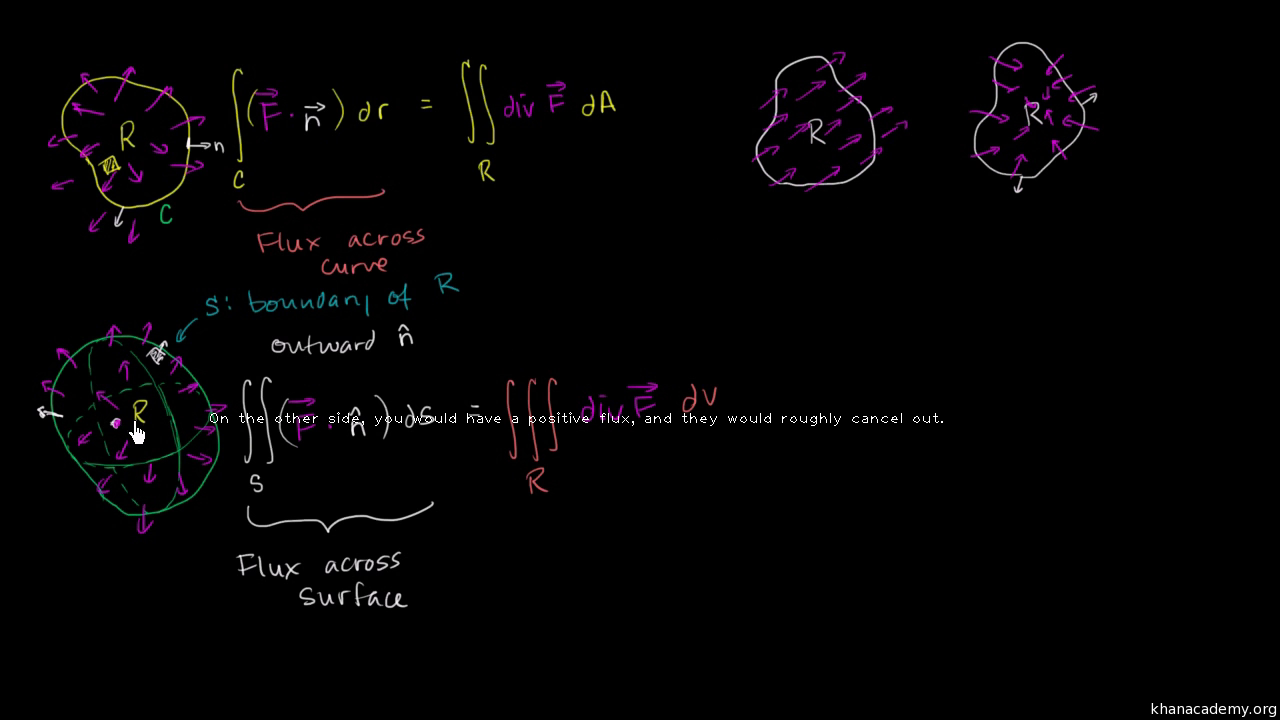 R
n
C
∫ (F⃗ · n⃗) dr = ∬ div F⃗ dA
C
R
Flux across
curve
R
R
S: boundary of R
outward n̂
R
∬ (F⃗ · n̂) ds = ∭ div F⃗ dV
S
R
On the other side, you would have a positive flux, and they would roughly cancel out.
Flux across
surface
khanacademy.org